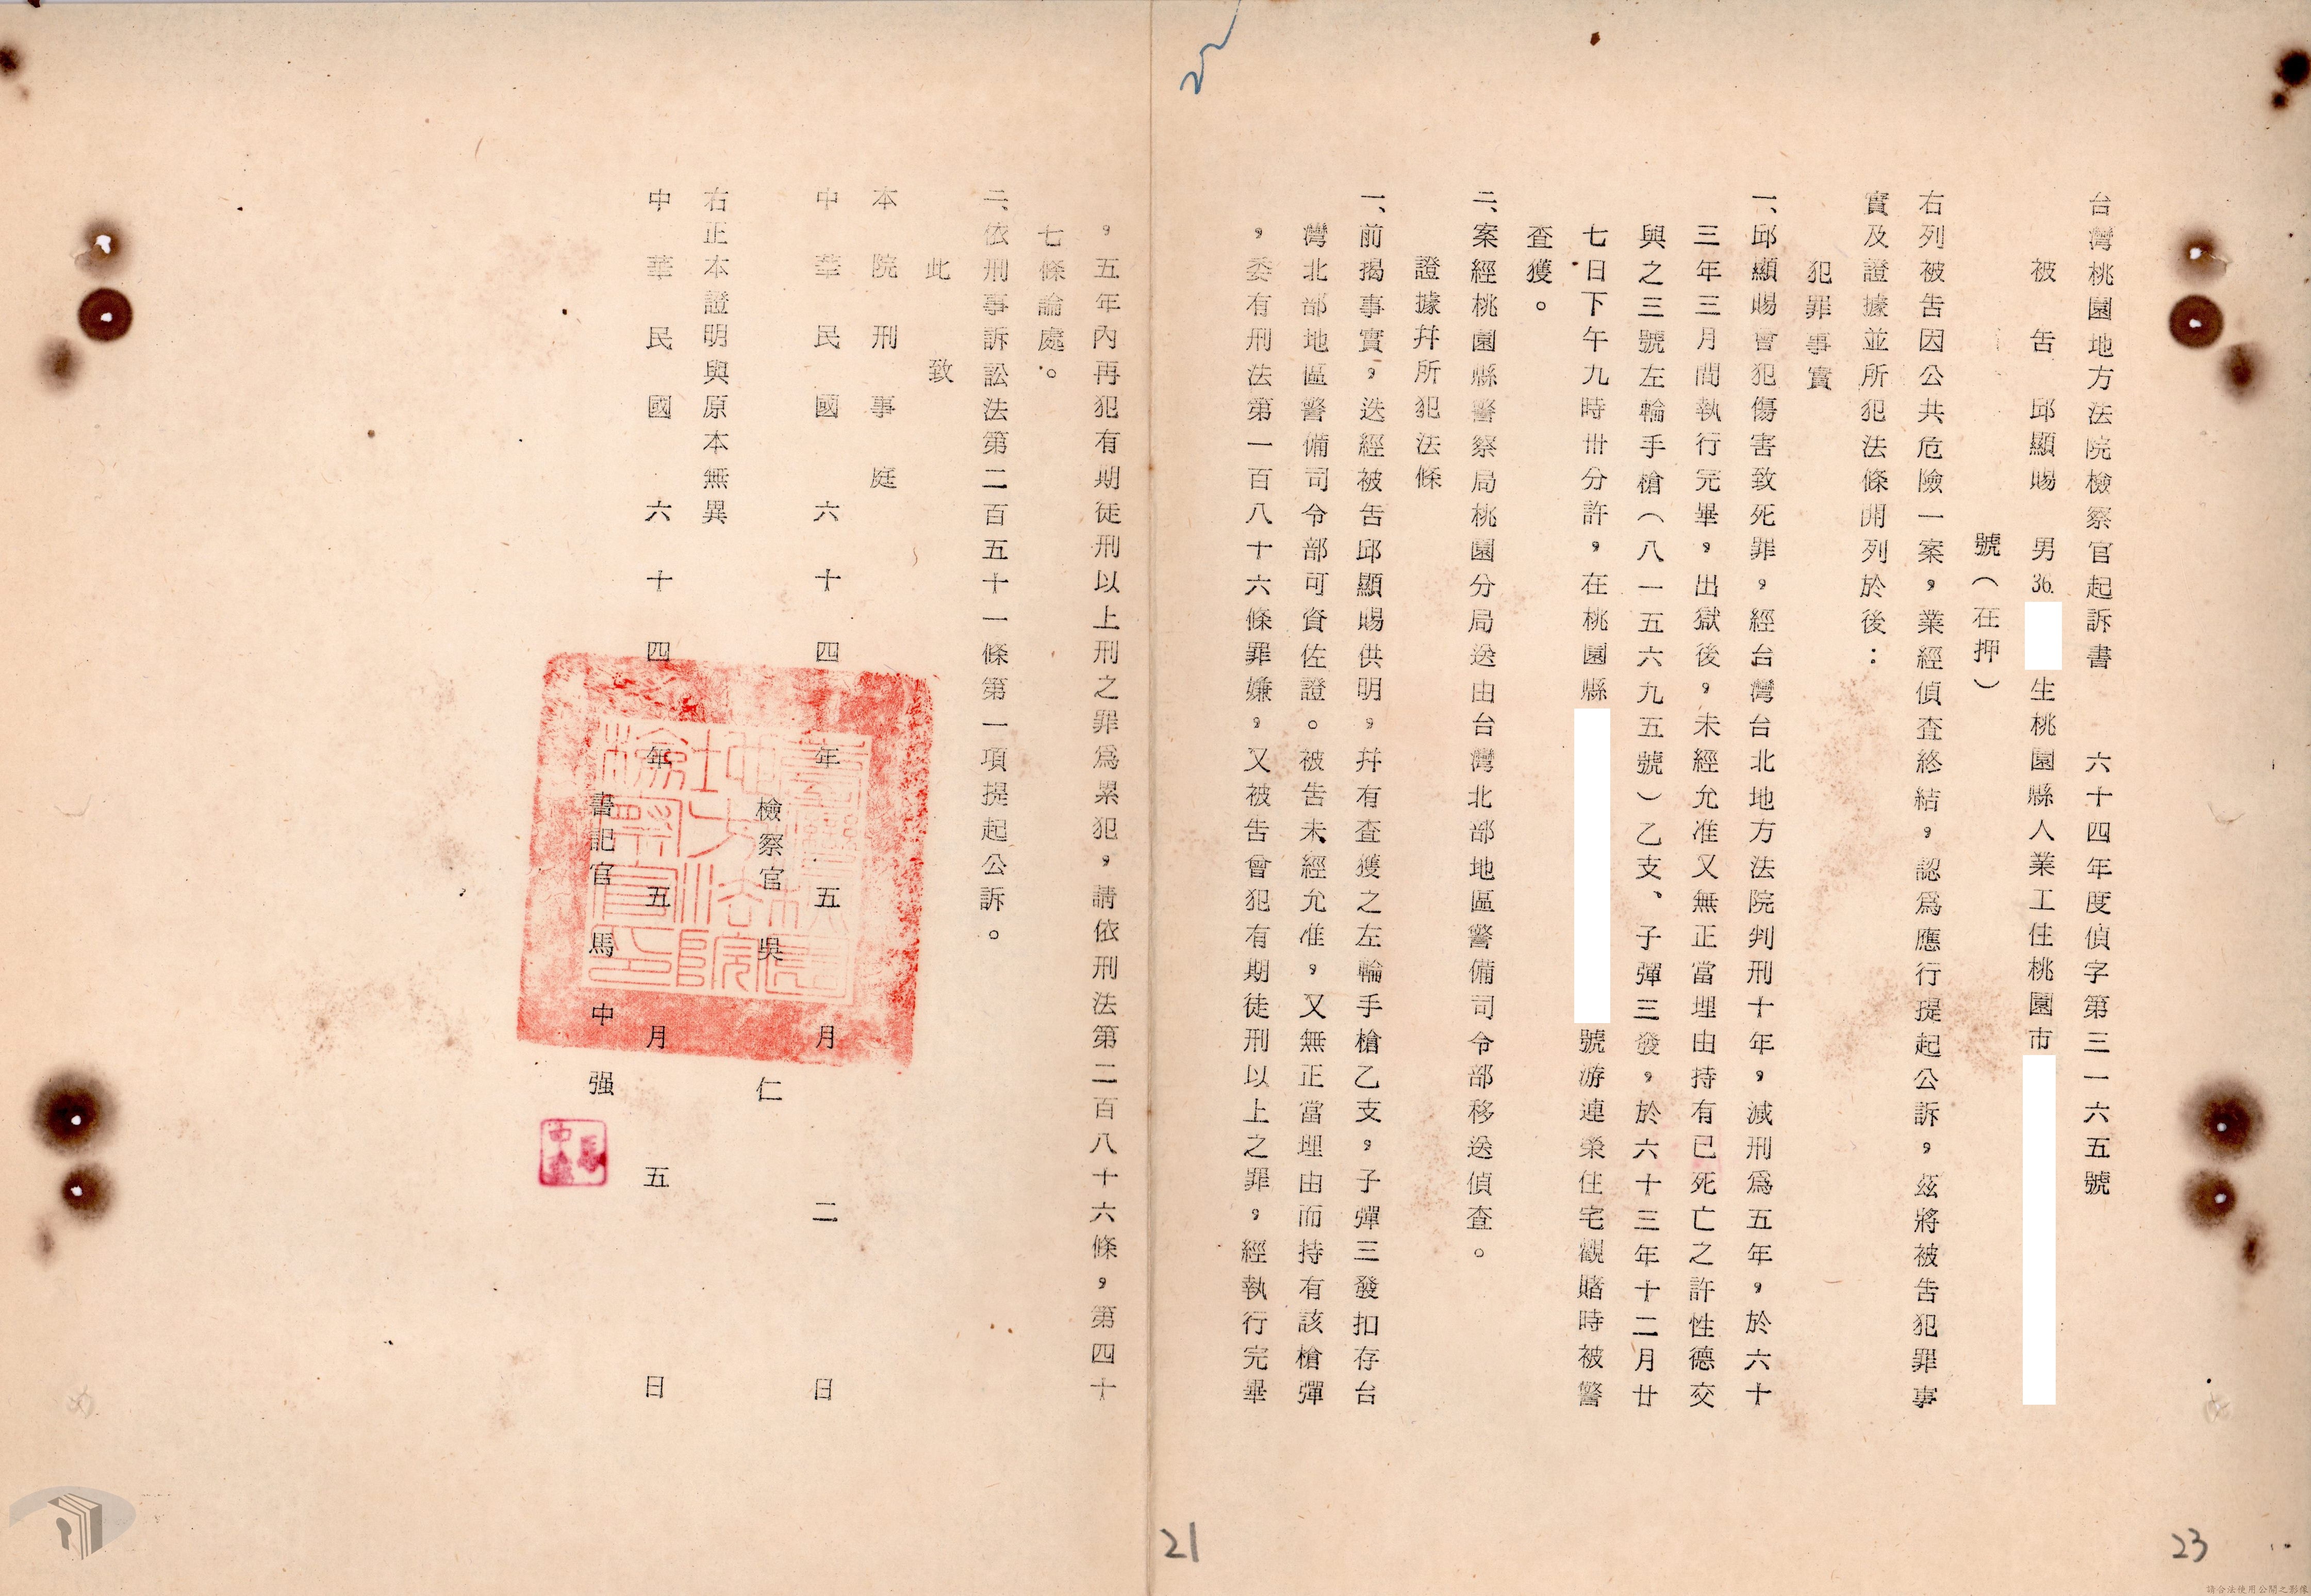 台灣桃園地方法院檢察官起訴書　六十四年度偵字第三一六五號
被告　邱顯賜　男36.　生桃園縣人業工住桃園市
號（在押）
右列被告因公共危險一案，業經偵查終結，認爲應行提起公訴，茲將被告犯罪事
實及證據並所犯法條開列於後：
犯罪事實
一、邱顯賜曾犯傷害致死罪，經台灣台北地方法院判刑十年，減刑爲五年，於六十
三年三月間執行完畢，出獄後，未經允准又無正當理由持有已死亡之許性德交
與之三號左輪手槍（八一五六九五號）乙支、子彈三發，於六十三年十二月廿
七日下午九時卅分許，在桃園縣　號游連榮住宅觀賭時被警
查獲。
二、案經桃園縣警察局桃園分局送由台灣北部地區警備司令部移送偵查。
證據幷所犯法條
一、前揭事實，迭經被告邱顯賜供明，幷有查獲之左輪手槍乙支，子彈三發扣存台
灣北部地區警備司令部可資佐證。被告未經允准，又無正當理由而持有該槍彈
，委有刑法第一百八十六條罪嫌，又被告曾犯有期徒刑以上之罪，經執行完畢
，五年內再犯有期徒刑以上刑之罪爲累犯，請依刑法第二百八十六條，第四十
七條論處。
二、依刑事訴訟法第二百五十一條第一項提起公訴。
此致
本院刑事庭
中華民國六十四年五月二日
檢察官　吳　仁
右正本證明與原本無異
中華民國六十四年五月五日
書記官　馬中强
臺灣桃園地方法院檢察官印
21
23
請合法使用公開之影像